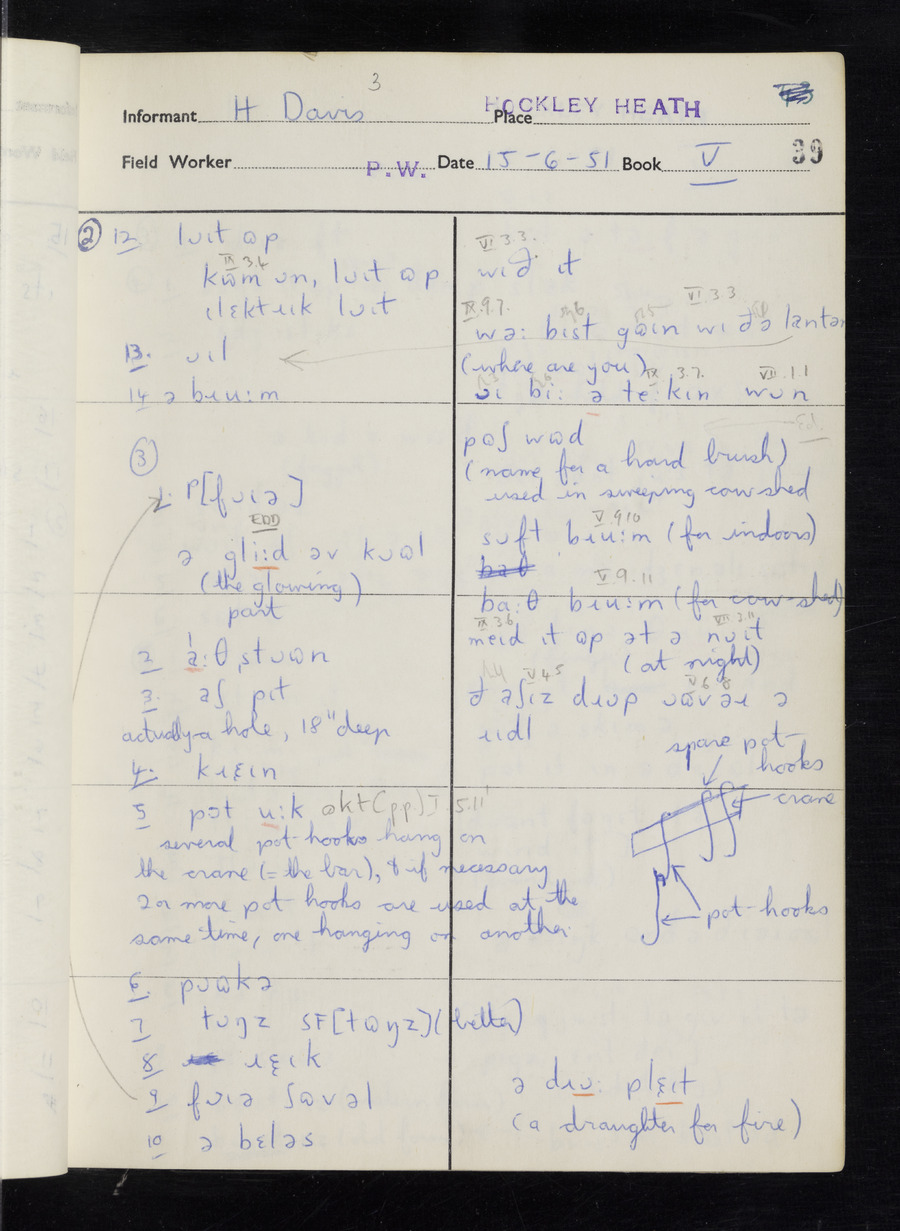 3
Informant H Davis Place HOCKLEY HEATH
Field Worker P.W. Date 15-6-51 Book V 39
② 12. lɒit ɷp
IX 3.4
kɷm ɒn, lɒit ɷp
ilɛktɹik lɒit
13. ɒil
14 ə bɹu:m
③
1. P[fɒiə]
EDD
ə gli:d əv kɒɷl
(the glowing)
part
2 ˈa:θˌstɒɷn
3. aʃ pit
actually a hole, 18" deep
4. kɹɛin
5 pɔt u:k ɷkt (pp.) I.5.11
several pot-hooks hang on
the crane (= the bar), & if necessary
2 or more pot hooks are used at the
same time, one hanging on another.
6. pɒɷkə
7 tɒŋz SF[tɷŋz] (better)
8 ɹɛik
9 fɒiə ʃɷvəl
10 ə bɛləs
VI 3.3.
wið it
IX.9.7. VI 3.3
wə: bist gɷin wi ðə lantən
(where are you)
IX 3.7. VII.1.1
ɒi bi: ə te:kin wɒn
Ed.
pɷʃ wɷd
(name for a hard brush)
used in sweeping cow shed
V.9.10
sɒft bɹu:m (for indoors)
V.9.11
ba:θ bɹu:m (for cow-shed)
IX 3.6 VII 3.11
meid it ɷp ət ə nɒit
(at night)
V 4 5 V 6 8
ð aʃiz dɹɒp ɒɷvəɹ ə
ɹidl
spare pot-
hooks
crane
pot-hooks
ə dɹɒ: plɛit
(a draughter for fire)